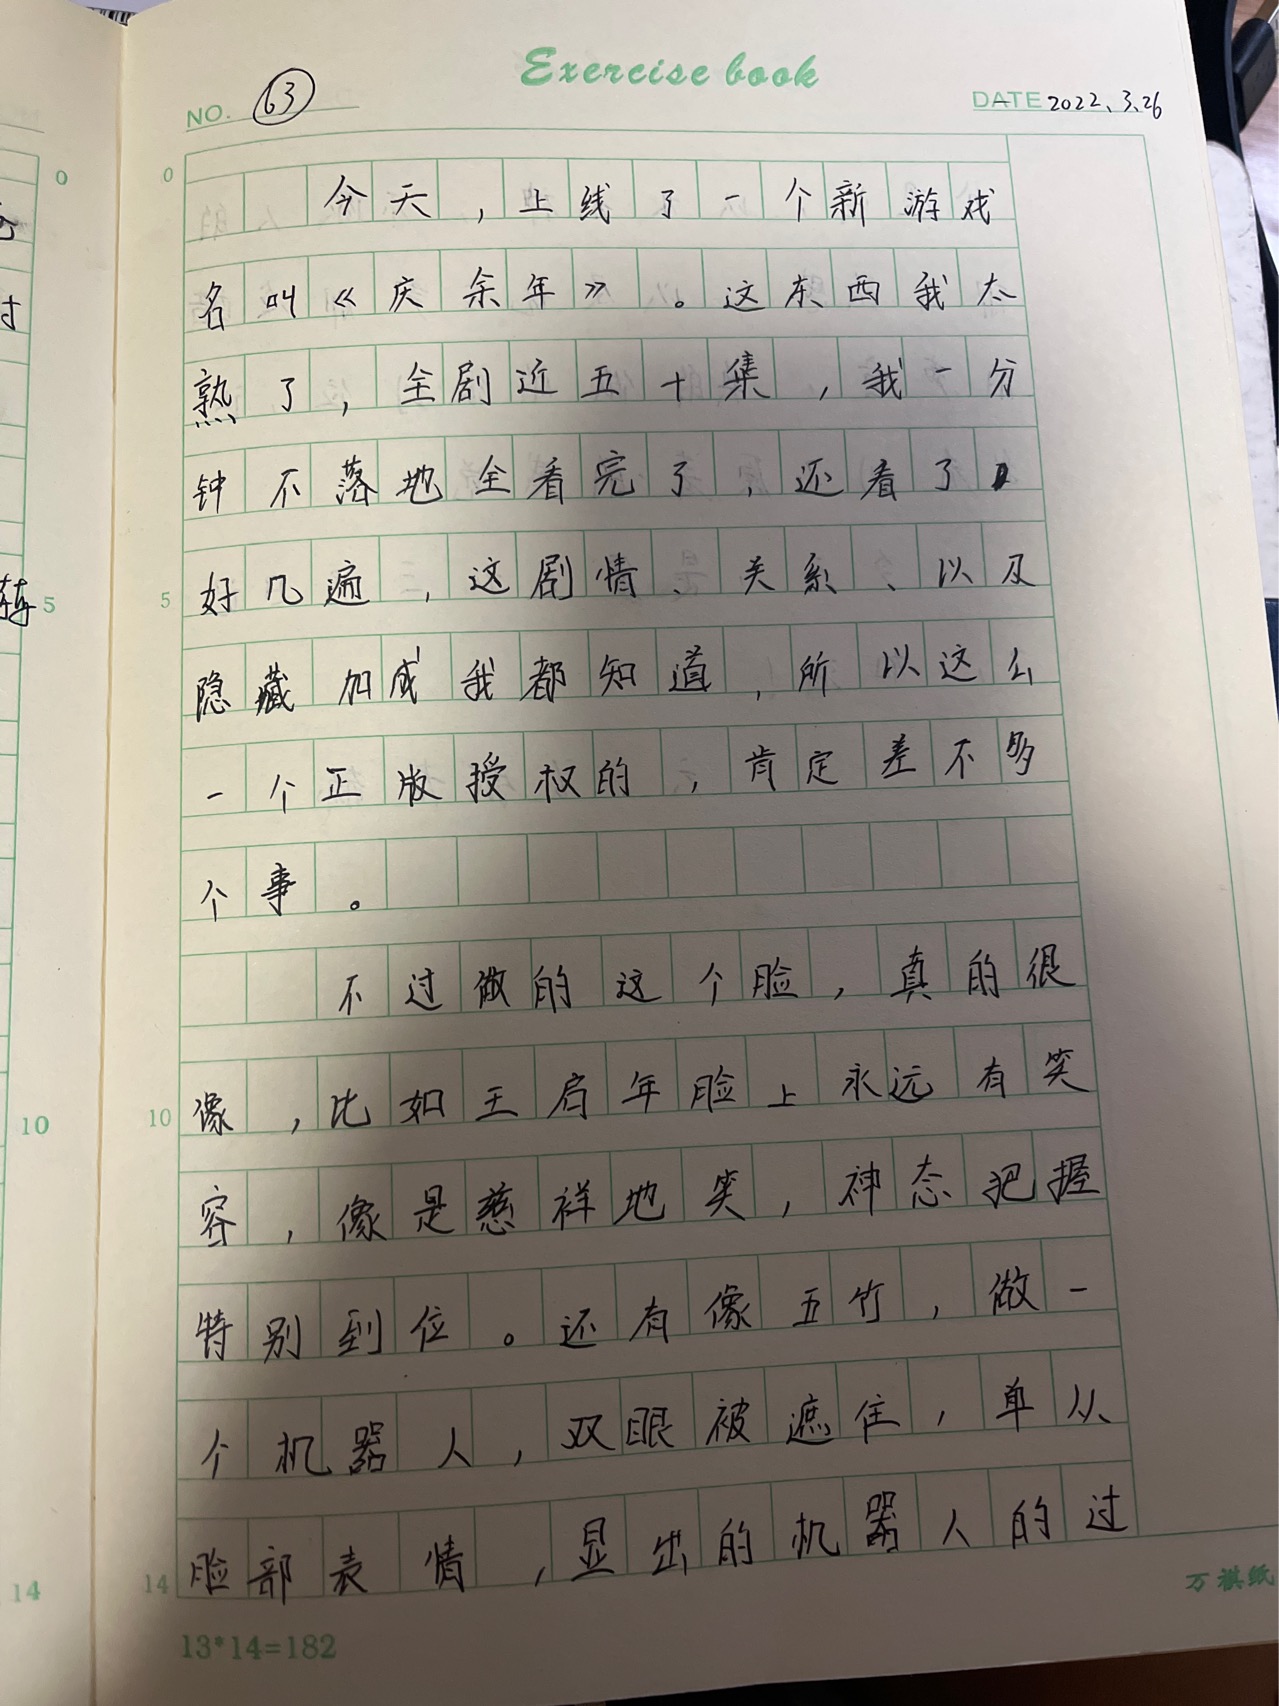 Exercise book
NO. 63
DATE 2022.3.26
今天，上线了一个新游戏
名叫《庆余年》。这东西我太
熟了，全剧近五十集，我一分
钟不落地全看完了，还看了
好几遍，这剧情、关系、以及
隐藏加成我都知道，所以这么
一个正版授权的，肯定差不多
个事。
不过做的这个脸，真的很
像，比如王启年脸上永远有笑
容，像是慈祥地笑，神态把握
特别到位。还有像五竹，做一
个机器人，双眼被遮住，单从
脸部表情，显出的机器人的过
0
5
10
14
13*14=182
万祺纸
0
5
10
14